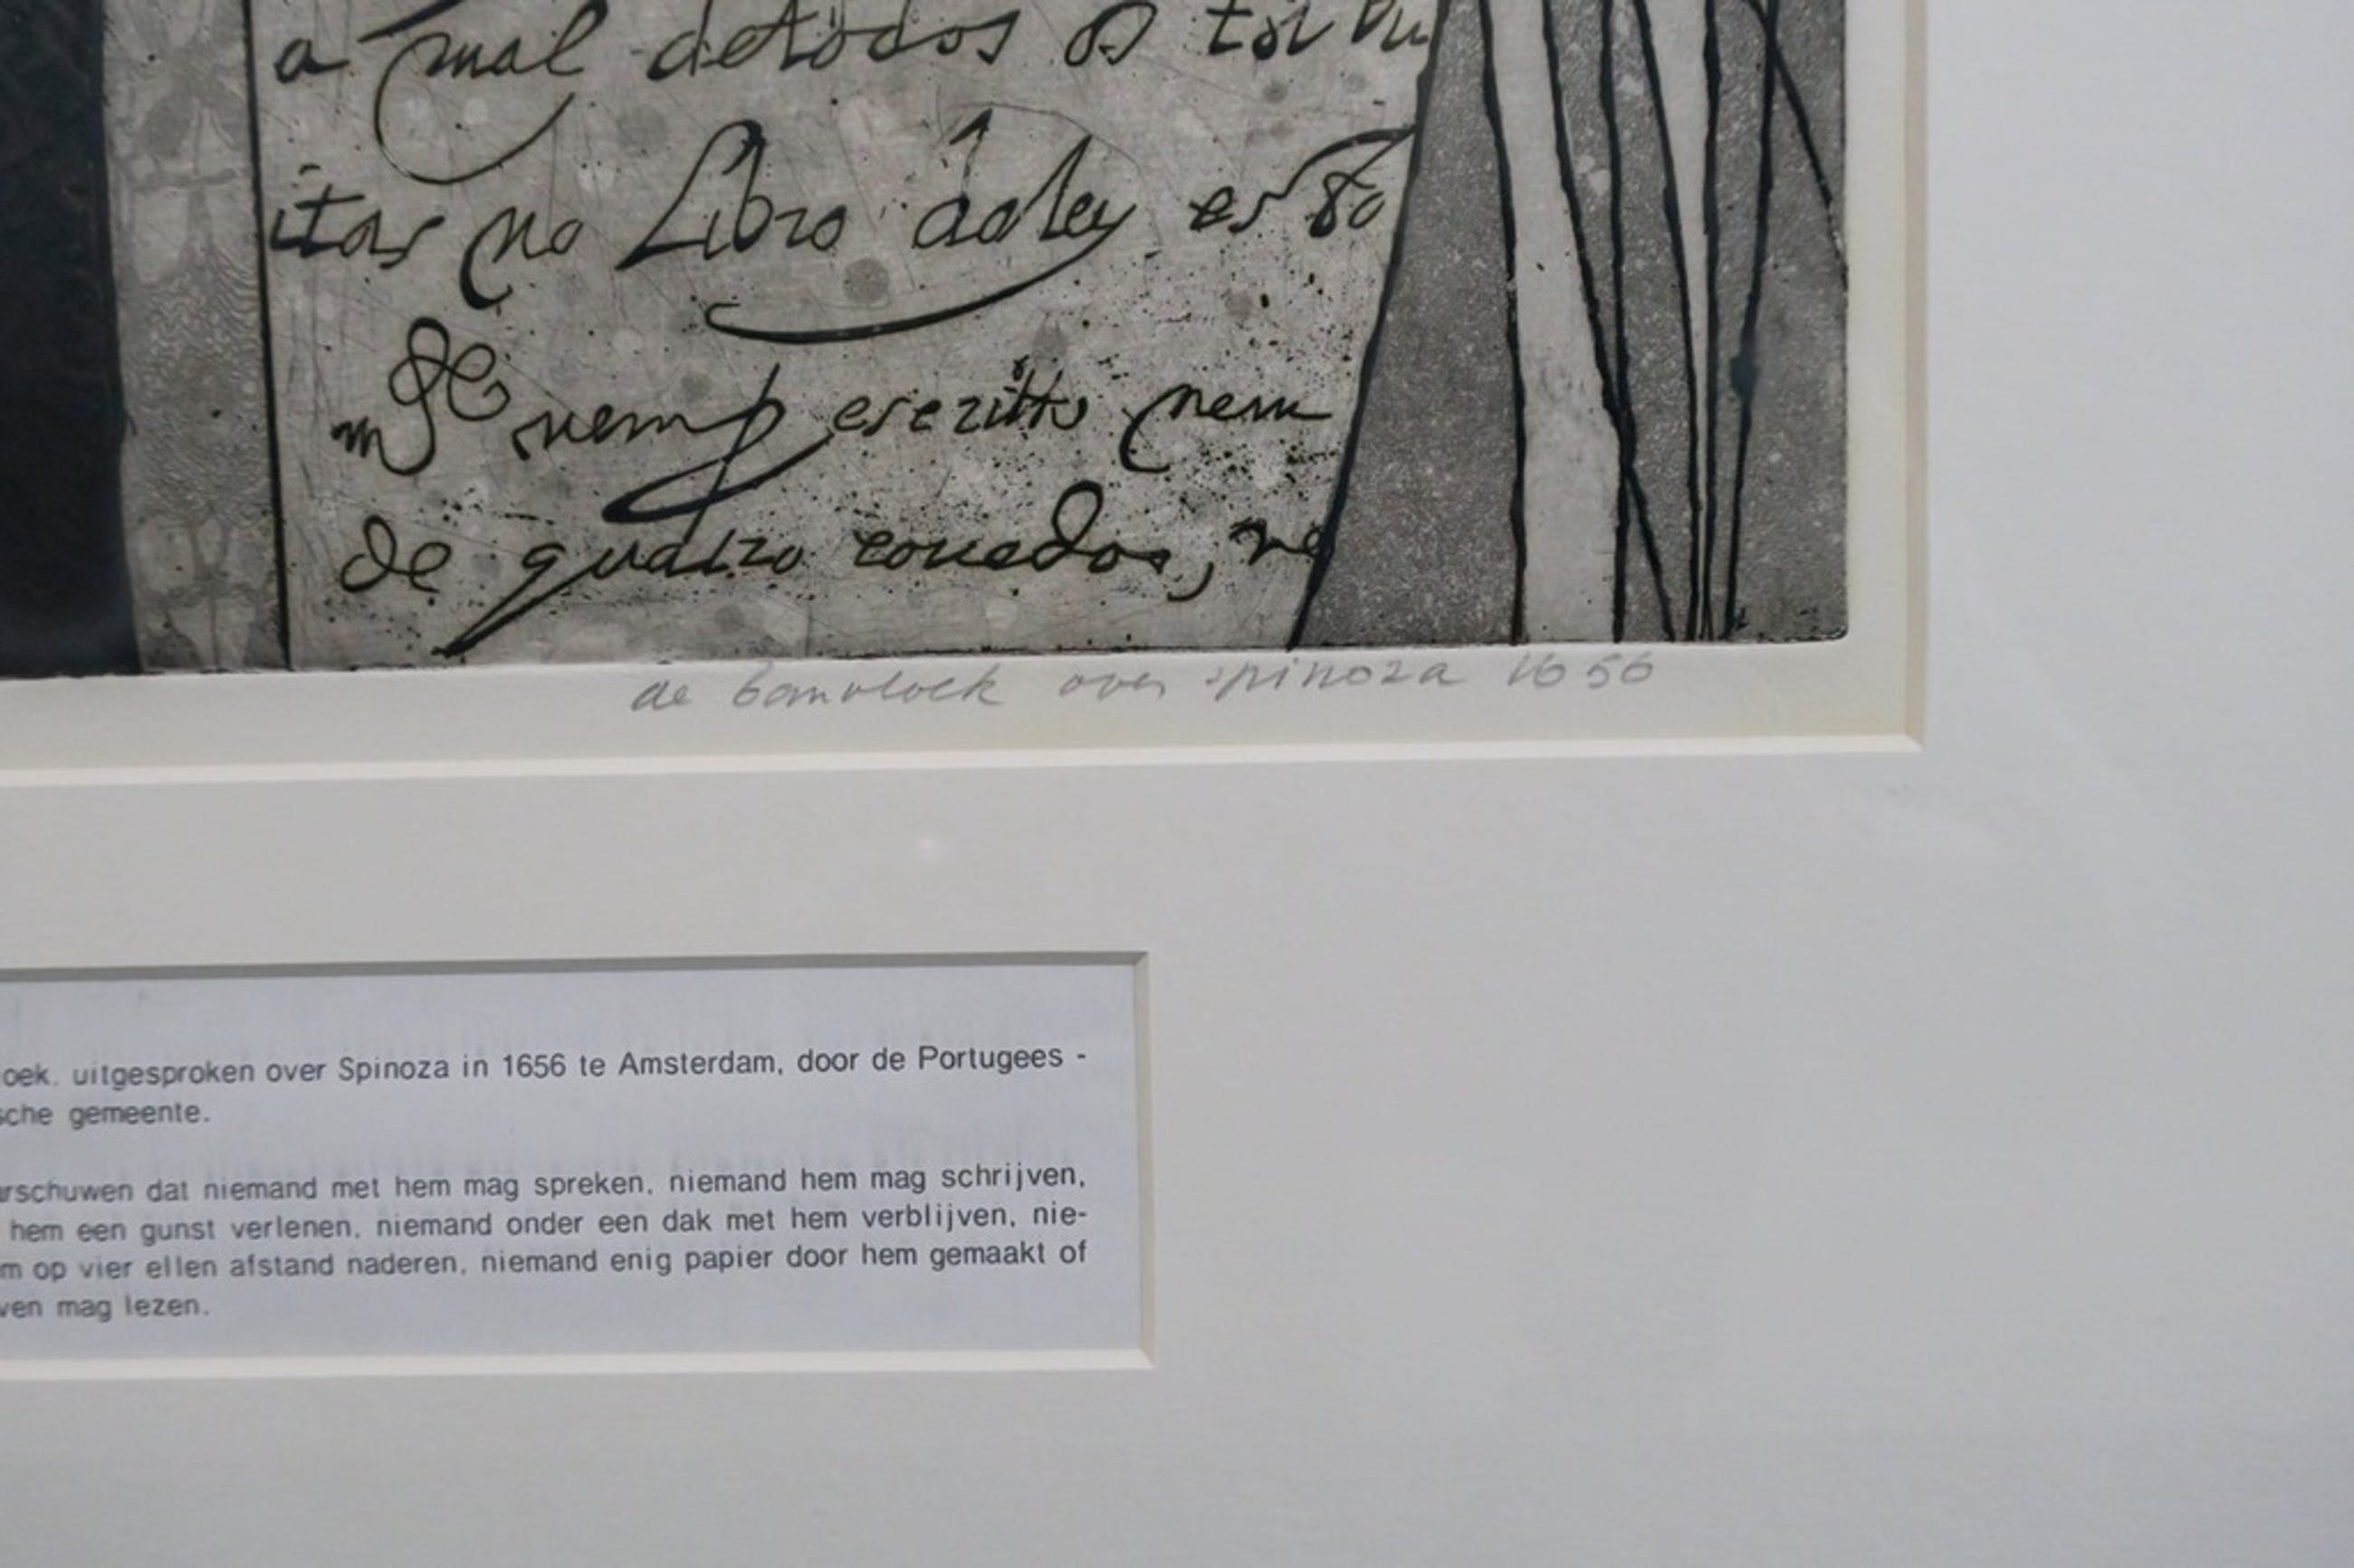 a mal detodos os tri bu
itas no Libro da ley esta
nem p escritto nem
de quatro couedos, ne
de banvloek over spinoza 1656
oek. uitgesproken over Spinoza in 1656 te Amsterdam, door de Portugees -
sche gemeente.
rschuwen dat niemand met hem mag spreken, niemand hem mag schrijven,
hem een gunst verlenen, niemand onder een dak met hem verblijven, nie-
m op vier ellen afstand naderen, niemand enig papier door hem gemaakt of
ven mag lezen.